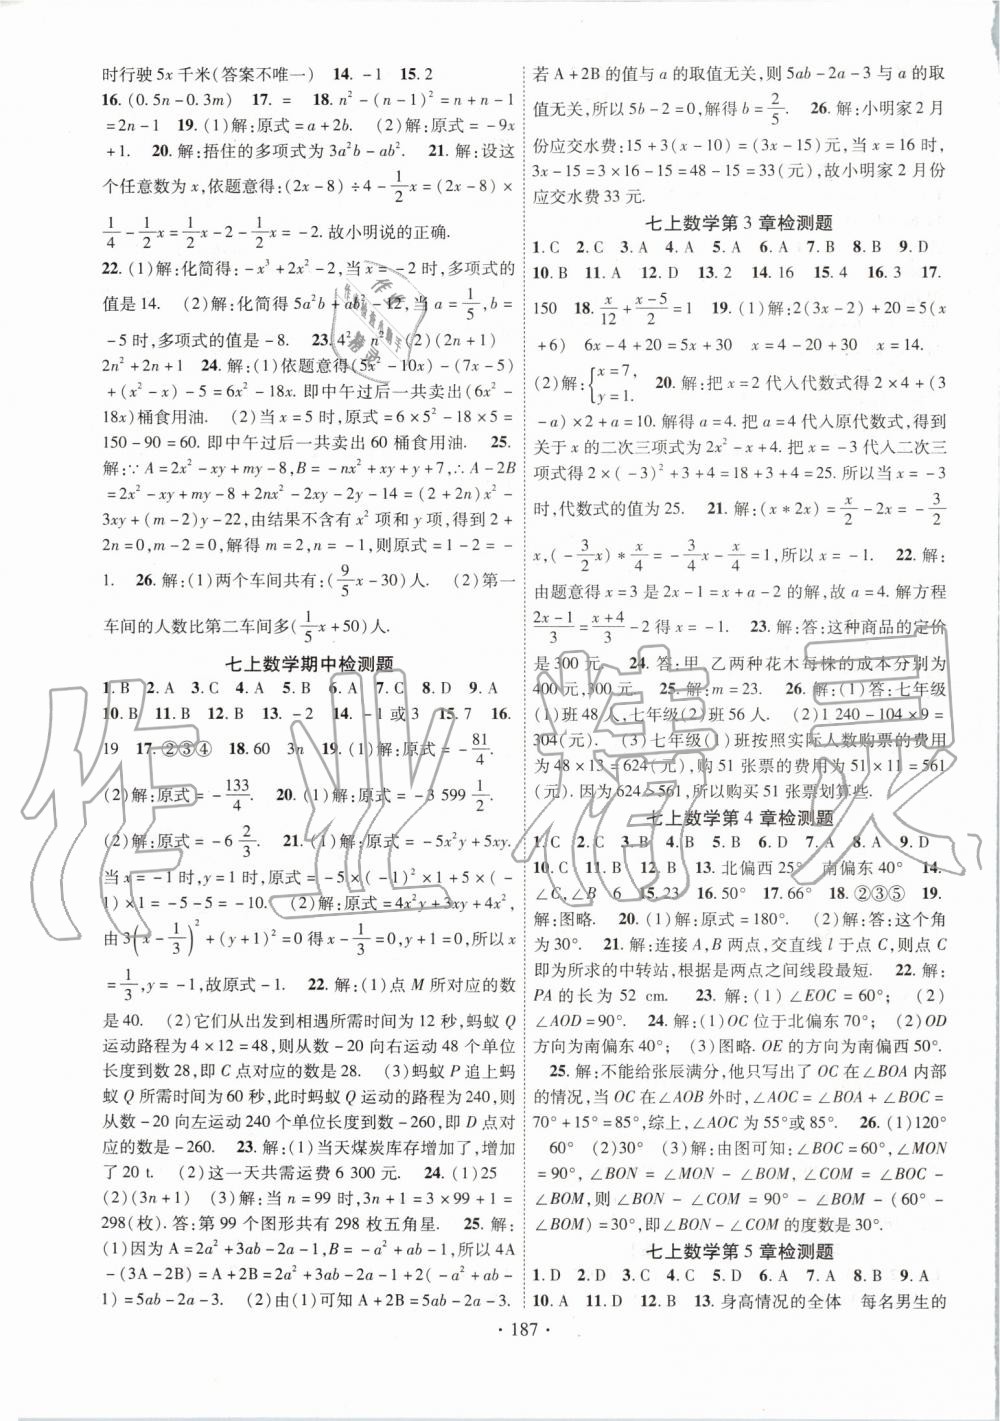 时行驶5x千米(答案不唯一)　14. －1　15. 2
16. (0.5n－0.3m)　17. ＝　18. n²－(n－1)²＝n＋n－1
＝2n－1　19. (1)解:原式＝a＋2b.　(2)解:原式＝－9x
＋1.　20. 解:捂住的多项式为3a²b－ab².　21. 解:设这
个任意数为x,依题意得:(2x－8)÷4－1/2x＝(2x－8)×
1/4－1/2x＝1/2x－2－1/2x＝－2.故小明说的正确.
22. (1)解:化简得:－x³＋2x²－2,当x＝－2时,多项式的
值是14.　(2)解:化简得5a²b＋ab²－12,当a＝1/5,b＝
－5时,多项式的值是－8.　23. 4²　n²　(2)(2n＋1)
2n²＋2n＋1　24. 解:(1)依题意得(5x²－10x)－(7x－5)
＋(x²－x)－5＝6x²－18x.即中午过后一共卖出(6x²－
18x)桶食用油.　(2)当x＝5时,原式＝6×5²－18×5＝
150－90＝60.即中午过后一共卖出60桶食用油.　25.
解:∵A＝2x²－xy＋my－8,B＝－nx²＋xy＋y＋7,∴A－2B
＝2x²－xy＋my－8＋2nx²－2xy－2y－14＝(2＋2n)x²－
3xy＋(m－2)y－22,由结果不含有x²项和y项,得到2＋
2n＝0,m－2＝0,解得m＝2,n＝－1,则原式＝1－2＝－
1.　26. 解:(1)两个车间共有:(9/5x－30)人.　(2)第一
车间的人数比第二车间多(1/5x＋50)人.
七上数学期中检测题
1. B　2. A　3. C　4. A　5. B　6. A　7. C　8. D　9. A
10. B　11. B　12. B　13. －2　14. －1或3　15. 7　16.
19　17. ②③④　18. 60　3n　19. (1)解:原式＝－81/4.
(2)解:原式＝－133/4.　20. (1)解:原式＝－3 599 1/2.
(2)解:原式＝－6 2/3.　21. (1)解:原式＝－5x²y＋5xy.
当x＝－1,y＝－1时,原式＝－5×(－1)²×1＋5×(－
1)×1＝－5－5＝－10.　(2)解:原式＝4x²y＋4x²－8,
由3(x－1/3)²＋(y＋1)²＝0得x－1/3＝0,y＋1＝0,所以x
＝1/3,y＝－1.故原式－1.　22. 解:(1)点M所对应的数
是40.　(2)它们从出发到相遇所需时间为12秒,蚂蚁Q
运动路程为4×12＝48,则从数－20向右运动48个单位
长度到数28,即C点对应的数是28.　(3)蚂蚁P追上蚂
蚁Q所需时间为60秒,此时蚂蚁Q运动的路程为240,则
从数－20向左运动240个单位长度到数－260,即D点对
应的数是－260.　23. 解:(1)当天煤炭库存增加了,增加
了20 t.　(2)这一天共需运费6 300元.　24. (1)25
(2)(3n＋1)　(3)解:当n＝99时,3n＋1＝3×99＋1＝
298(枚).答:第99个图形共有298枚五角星.　25. 解:
(1)因为A＝2a²＋3ab－2a－1,B＝a²＋ab－1,所以4A
－(3A－2B)＝A－2B＝2a²＋3ab－2a－1－2(a²＋ab－1)
＝5ab－2a－3.　(2)由(1)可知A＋2B＝5ab－2a－3.
若A＋2B的值与a的取值无关,则5ab－2a－3与a的取
值无关,所以5b－2＝0,解得b＝2/5.　26. 解:小明家2月
份应交水费:15＋3(x－10)＝(3x－15)元,当x＝16时,
3x－15＝3×16－15＝48－15＝33(元),故小明家2月份
应交水费33元.
七上数学第3章检测题
1. C　2. C　3. A　4. A　5. A　6. A　7. B　8. B　9. D
10. B　11. A　12. D　13. 2　14. 16　15. 4　16. 3　17.
150　18. x/12＋(x－5)/2＝1　19. (1)解:2(3x－2)＋20＝5(x
＋6)　6x－4＋20＝5x＋30　x＝4－20＋30　x＝14.
(2)解:{x＝7, y＝1.　20. 解:把x＝2代入代数式得2×4＋(3
－a)×2＋a＝10.解得a＝4.把a＝4代入原代数式,得到
关于x的二次三项式为2x²－x＋4.把x＝－3代入二次三
项式得2×(－3)²＋3＋4＝18＋3＋4＝25.所以当x＝－3
时,代数式的值为25.　21. 解:(x＊2x)＝x/2－2x＝－3/2
x,(－3/2x)＊x/4＝－3x/4－x/4＝1,所以x＝－1.　22. 解:
由题意得x＝3是2x－1＝x＋a－2的解.故a＝4.解方程
(2x－1)/3＝(x＋4)/3－2得x＝－1.　23. 解:答:这种商品的定价
是300元.　24. 答:甲、乙两种花木每株的成本分别为
400元,300元.　25. 解:m＝23.　26. 解:(1)答:七年级
(1)班48人,七年级(2)班56人.　(2)1 240－104×9＝
304(元).　(3)七年级(1)班按照实际人数购票的费用
为48×13＝624(元),购51张票的费用为51×11＝561
(元).因为624＞561,所以购买51张票划算些.
七上数学第4章检测题
1. C　2. D　3. B　4. D　5. B　6. D　7. B　8. A　9. D
10. C　11. B　12. B　13. 北偏西25°　南偏东40°　14.
∠C,∠B　6　15. 23　16. 50°　17. 66°　18. ②③⑤　19.
解:图略.　20. (1)解:原式＝180°.　(2)解:答:这个角
为30°.　21. 解:连接A,B两点,交直线l于点C,则点C
即为所求的中转站,根据是两点之间线段最短.　22. 解:
PA的长为52 cm.　23. 解:(1)∠EOC＝60°;　(2)
∠AOD＝90°.　24. 解:(1)OC位于北偏东70°;　(2)OD
方向为南偏东40°;　(3)图略.OE的方向为南偏西50°.
25. 解:不能给张辰满分,他只写出了OC在∠BOA内部
的情况,当OC在∠AOB外时,∠AOC＝∠BOA＋∠BOC＝
70°＋15°＝85°,综上,∠AOC为55°或85°.　26. (1)120°
60°　(2)30°　(3)解:由图可知:∠BOC＝60°,∠MON
＝90°,∠BON＝∠MON－∠BOM,∠COM＝∠BOC－
∠BOM,则∠BON－∠COM＝90°－∠BOM－(60°－
∠BOM)＝30°,即∠BON－∠COM的度数是30°.
七上数学第5章检测题
1. D　2. D　3. C　4. C　5. B　6. A　7. B　8. B　9. A
10. A　11. D　12. B　13. 身高情况的全体　每名男生的
· 187 ·
作业精灵